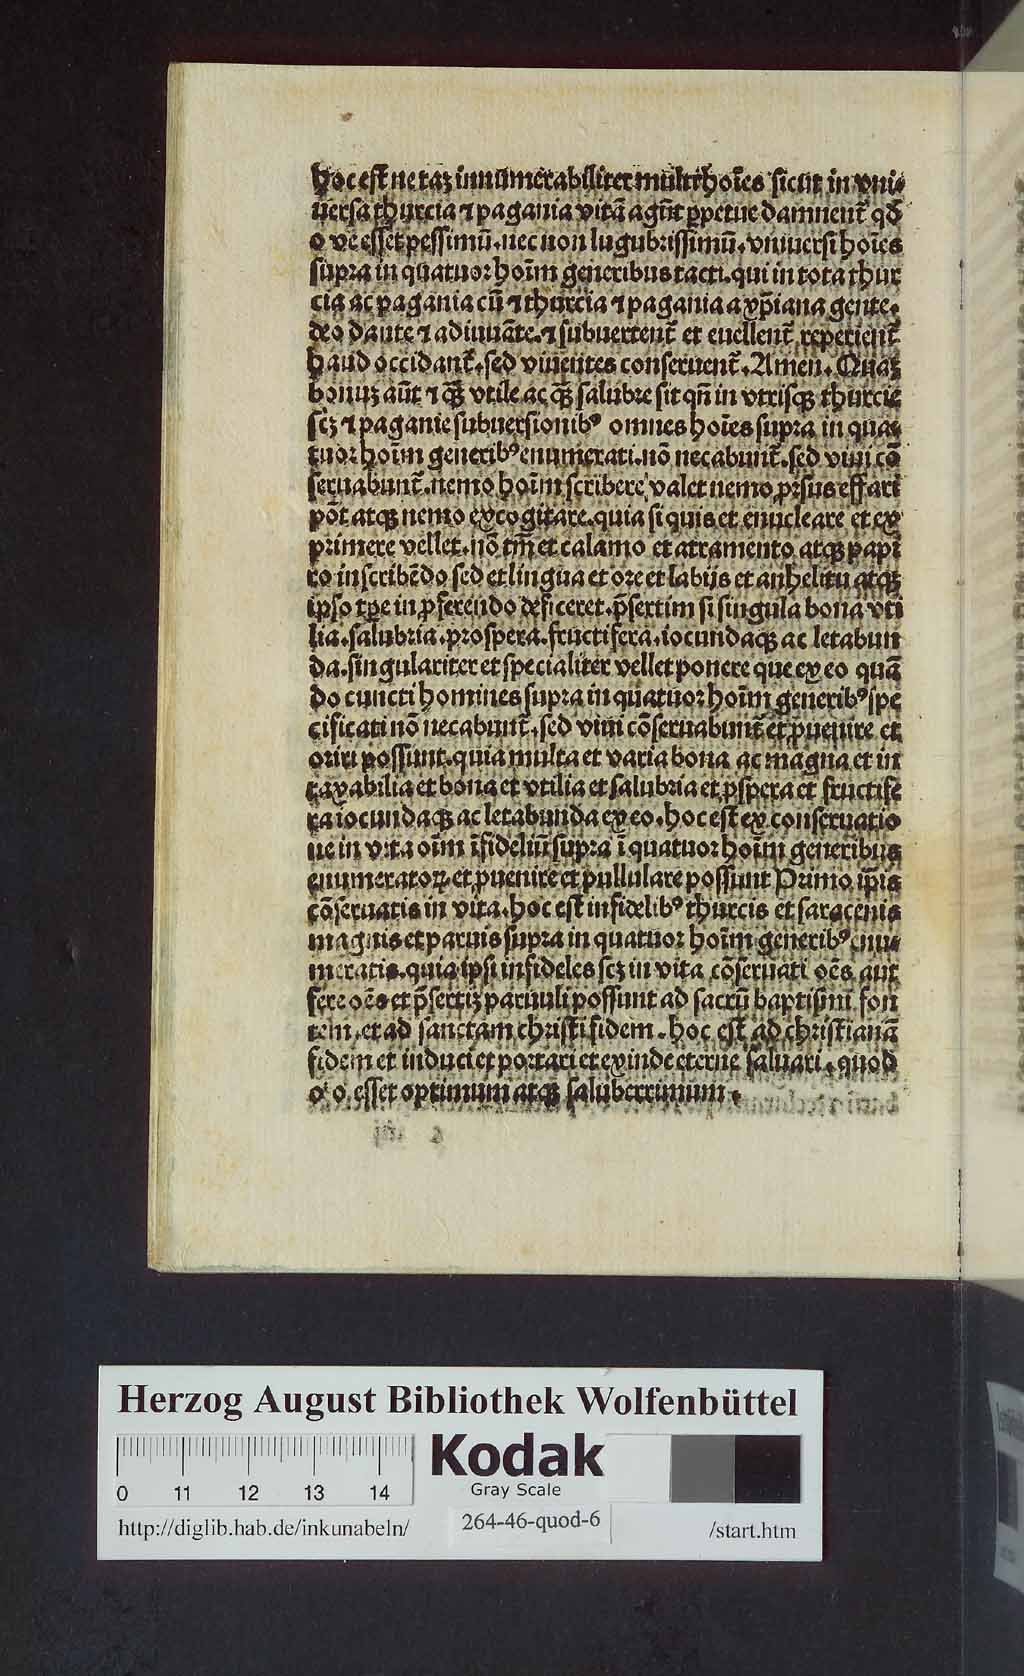 hoc est ne taꝫ innumerabiliter multi hoīes sicut in vni-
uersa thurcia ⁊ pagania vitā agūt ꝑpetue damnent᷑ qđ
o ve esset pessimū.nec non lugubrissimū.vniuersi hoīes
supra in quatuor hoīm generibus tacti.qui in tota thur
cia ac pagania cū ⁊ thurcia ⁊ pagania a xp̄iana gente.
deo dante ⁊ adiuuāte.⁊ subuertent᷑ et euellent᷑ reperient᷑
haud occidant᷑.sed viuentes conseruent᷑.Amen.Quaꝫ
bonuꝫ aūt ⁊ q̄ꝫ vtile ac q̄ꝫ salubre sit qn̄ in vtrisqꝫ thurcie
scꝫ ⁊ paganie subuersionibꝰ omnes hoīes supra in qua-
tuor hoīm generibꝰ enumerati.nō necabunt᷑.sed viui cō
seruabunt᷑.nemo hoīm scribere valet nemo ꝓrsus effari
pōt atqꝫ nemo excogitare.quia si quis et enucleare et ex
primere vellet.nō tm̄ et calamo et atramento atqꝫ papi
ro inscribēdo sed et lingua et ore et labijs et anhelitu atqꝫ
ipso tꝑe in ꝓferendo deficeret.p̄sertim si singula bona vti
lia.salubria.prospera.fructifera.iocundaqꝫ ac letabun
da.singulariter et specialiter vellet ponere que ex eo quā
do cuncti homines supra in quatuor hoīm generibꝰ spe
cificati nō necabunt᷑.sed viui cōseruabunt᷑ et ꝓuenire et
oriri possunt.quia multa et varia bona ac magna et in
taxabilia et bona et vtilia et salubria et ꝓspera et fructife
ra iocundaqꝫ ac letabunda ex eo.hoc est ex conseruatio
ne in vita oīm īfideliū supra ī quatuor hoīm generibus
enumeratoꝝ.et ꝓuenire et pullulare possunt Primo ip̄is
cōseruatis in vita.hoc est infidelibꝰ thurcis et saracenis
magnis et paruis supra in quatuor hoīm generibꝰ enu-
meratis.quia ipsi infideles scꝫ in vita cōseruati oēs aut
fere oēs et p̄sertiꝫ paruuli possunt ad sacrū baptismi fon
tem.et ad sanctam christi fidem.hoc est ad christianā
fidem et induci et portari et exinde eterne saluari.quod
o o esset optimum atqꝫ saluberrimum.
Herzog August Bibliothek Wolfenbüttel
0 11 12 13 14
Kodak
Gray Scale
http://diglib.hab.de/inkunabeln/ 264-46-quod-6 /start.htm